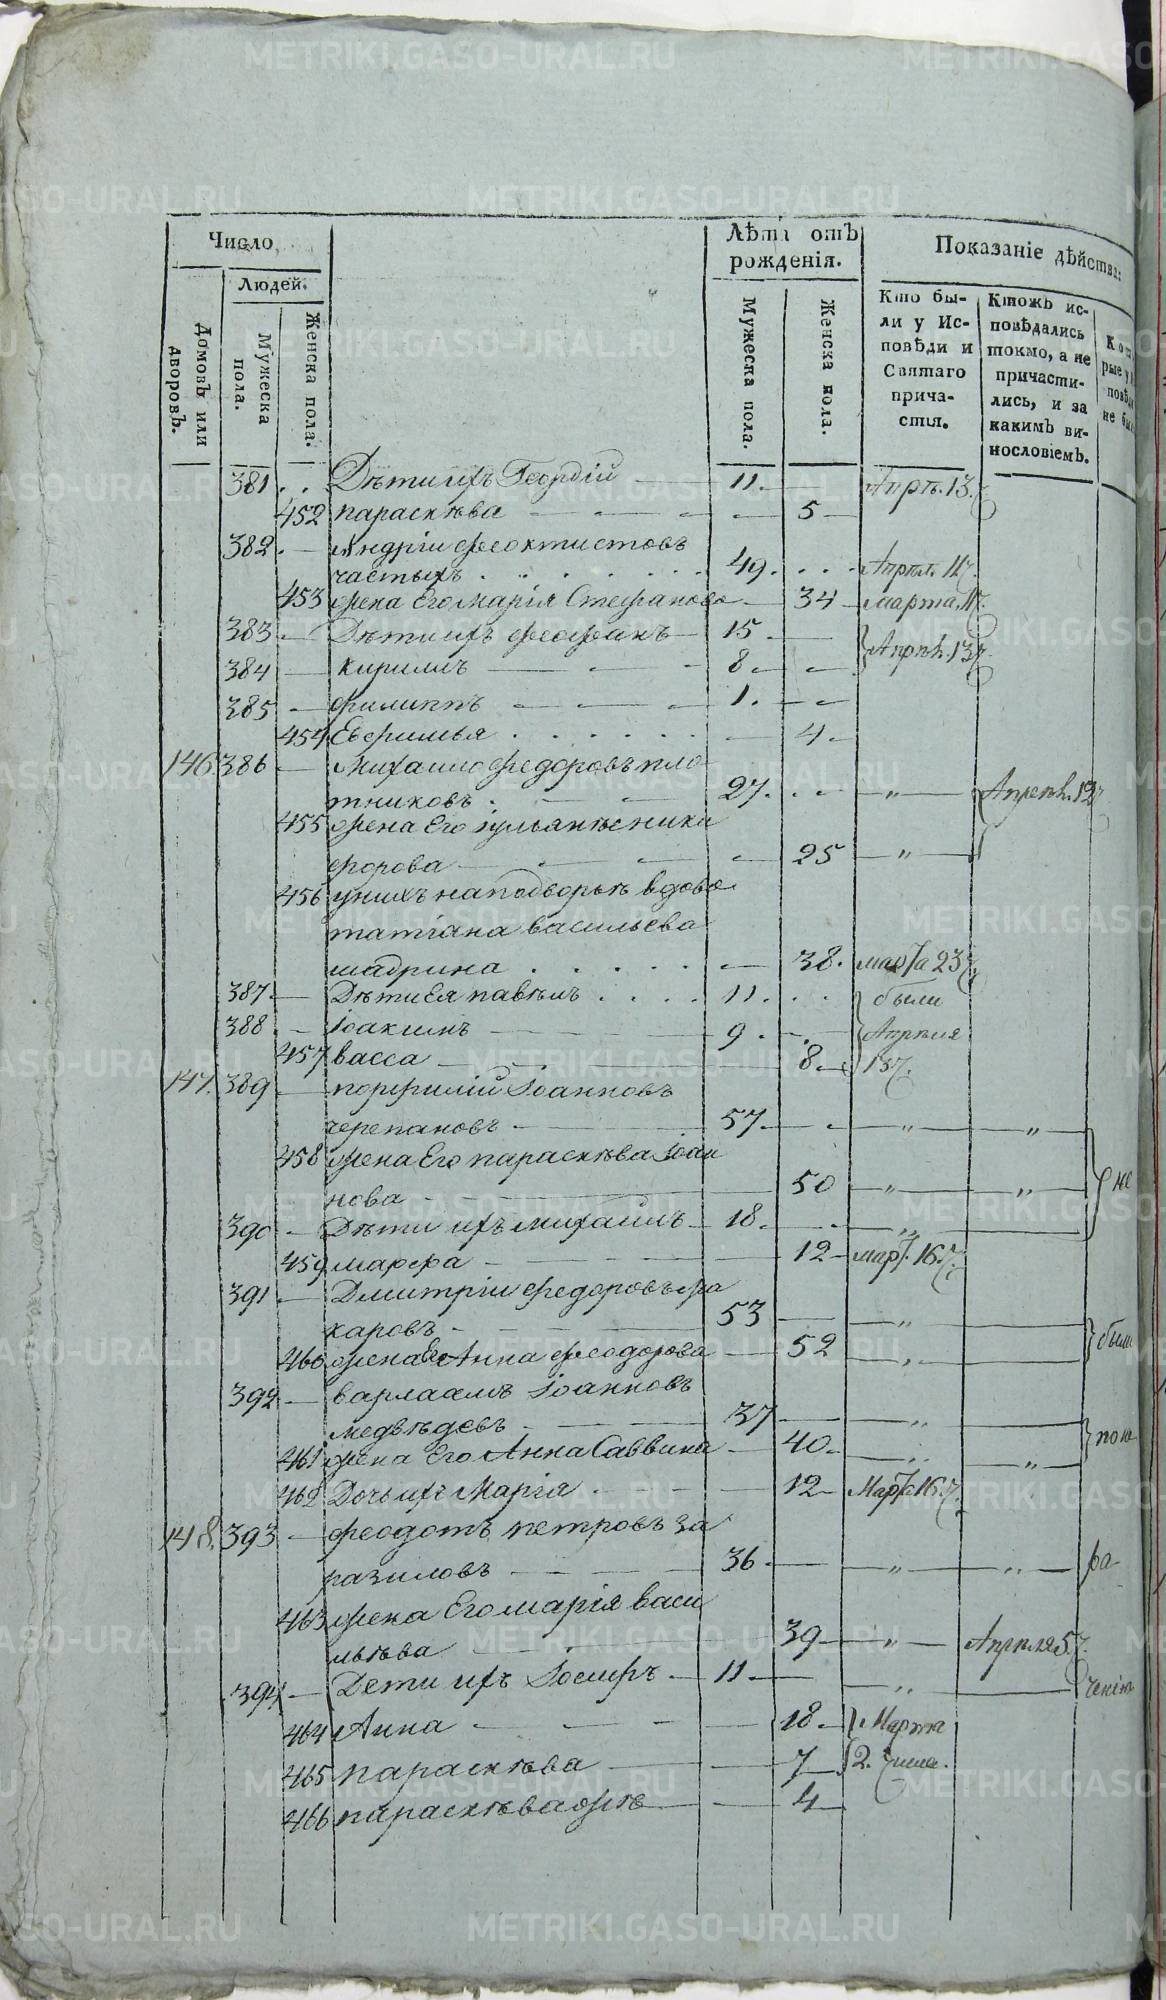 Число
Людей.
Домовъ или дворовъ.
Мужеска пола.
Женска пола.
Лѣта отъ рожденія.
Мужеска пола.
Женска пола.
Показаніе дѣйства:
Кто были у Исповѣди и Святаго причастія.
Ктожъ исповѣдались токмо, а не причастились, и за какимъ винословіемъ.
381 Дѣти ихъ Георгій 11. Апрѣ. 13.
452 параскѣва 5
382. Андріи феоктистовъ
частыхъ 49. Апрѣл.
453 жена Его марія Стефанова 34 марта
383 Дѣти ихъ феофанъ 15 Апрѣл. 13
384 кирилъ 8
385 филиппъ 1.
454 Евфимья 4
146. 386 михаило федоровъ пло
тниковъ 27. „
455 жена Его іульянѣ ники
форова 25 „
456 у нихъ на подворьѣ вдова
татіана васильева
шадрина 38. марта 23
387. Дѣти Ея павѣлъ 11. были
388 іоакимъ 9. Апрѣля
457 васса 8
147. 389 порфилій Іоанновъ
черепановъ 57 „ „
458 жена Его параскѣва Іоан
нова 50 „ „ не
390 Дѣти ихъ михаилъ 18. „
459 марфа 12 март. 16
391 Дмитріи федоровъ
каровъ 53 „
460 жена Его Анна феодорова 52 „
392 варлаамъ Іоанновъ
медвѣдевъ 37 „
461 жена Его Анна Саввина 40 „ „
462 Дочь ихъ Марія 12 Март. 16
148. 393 феодотъ петровъ за
разиловъ 36 „ „
463 жена Его марія васи
льева 39 „ Апрѣля 5
394 Дети ихъ Іосифъ 11 „
464 Анна 18 Марта
465 параскѣва 7 2. числа.
466 параскѣва 4
METRIKI.GASO-URAL.RU